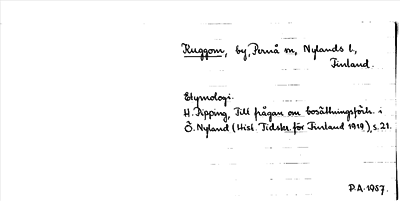 Kuggom, by, Pernå sn, Nylands l.,
Finland.
Etymologi.
H. Pipping, Till frågan om bosättningsförh. i
Ö. Nyland (Hist. Tidskr. för Finland 1919), s. 21.
P.A. 1957.